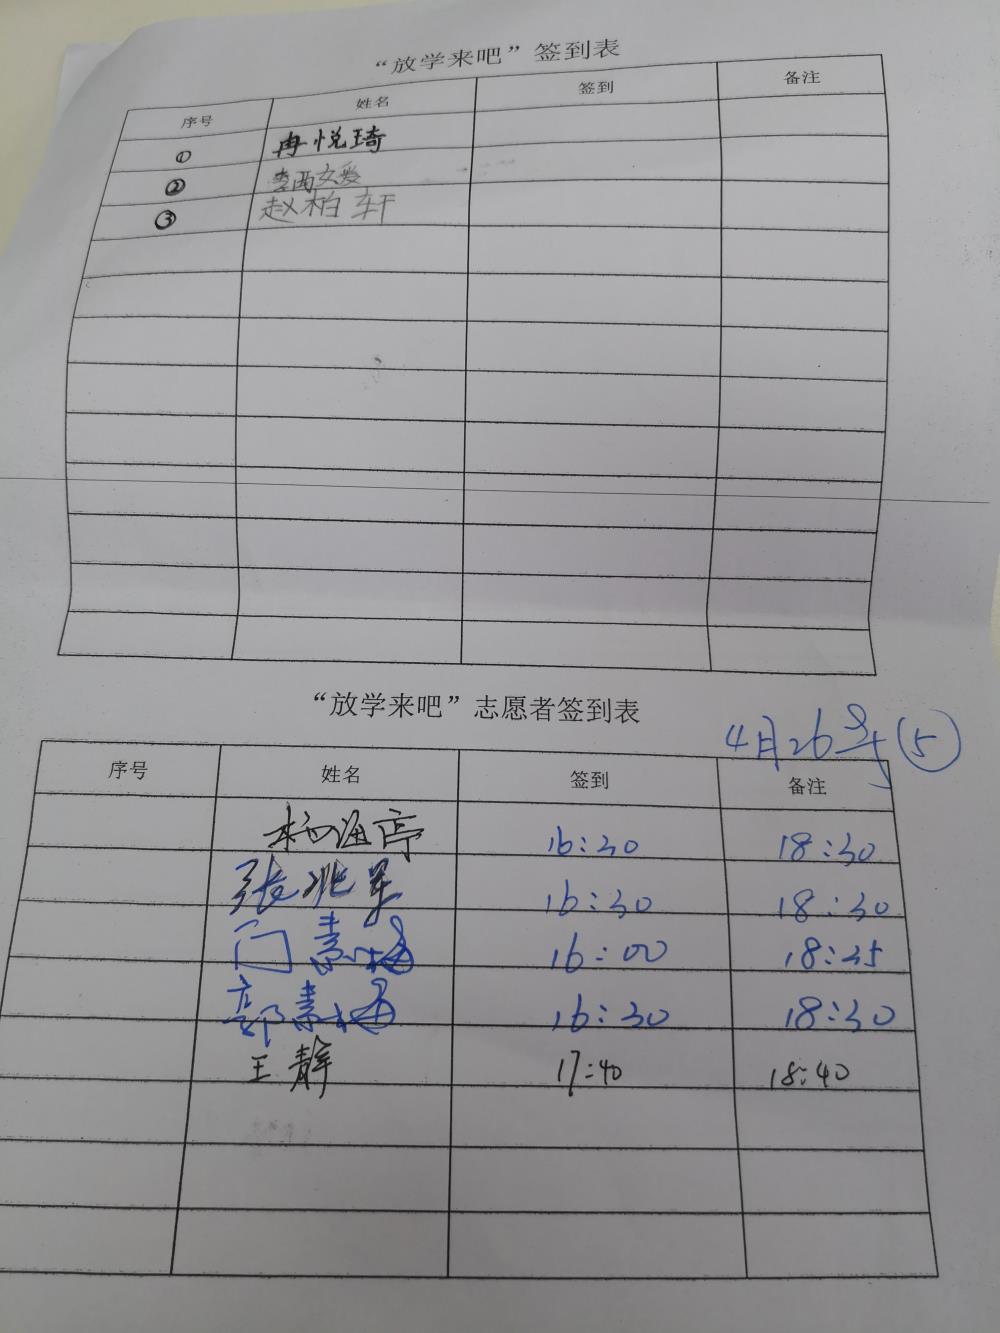 “放学来吧”签到表
序号 姓名 签到 备注
① 冉悦琦
② 李
③ 赵柏轩
“放学来吧”志愿者签到表
4月26号(5)
序号 姓名 签到 备注
杨海亭 16:30 18:30
张兆军 16:30 18:30
门素梅 16:00 18:25
郭素梅 16:30 18:30
王静 17:40 18:40